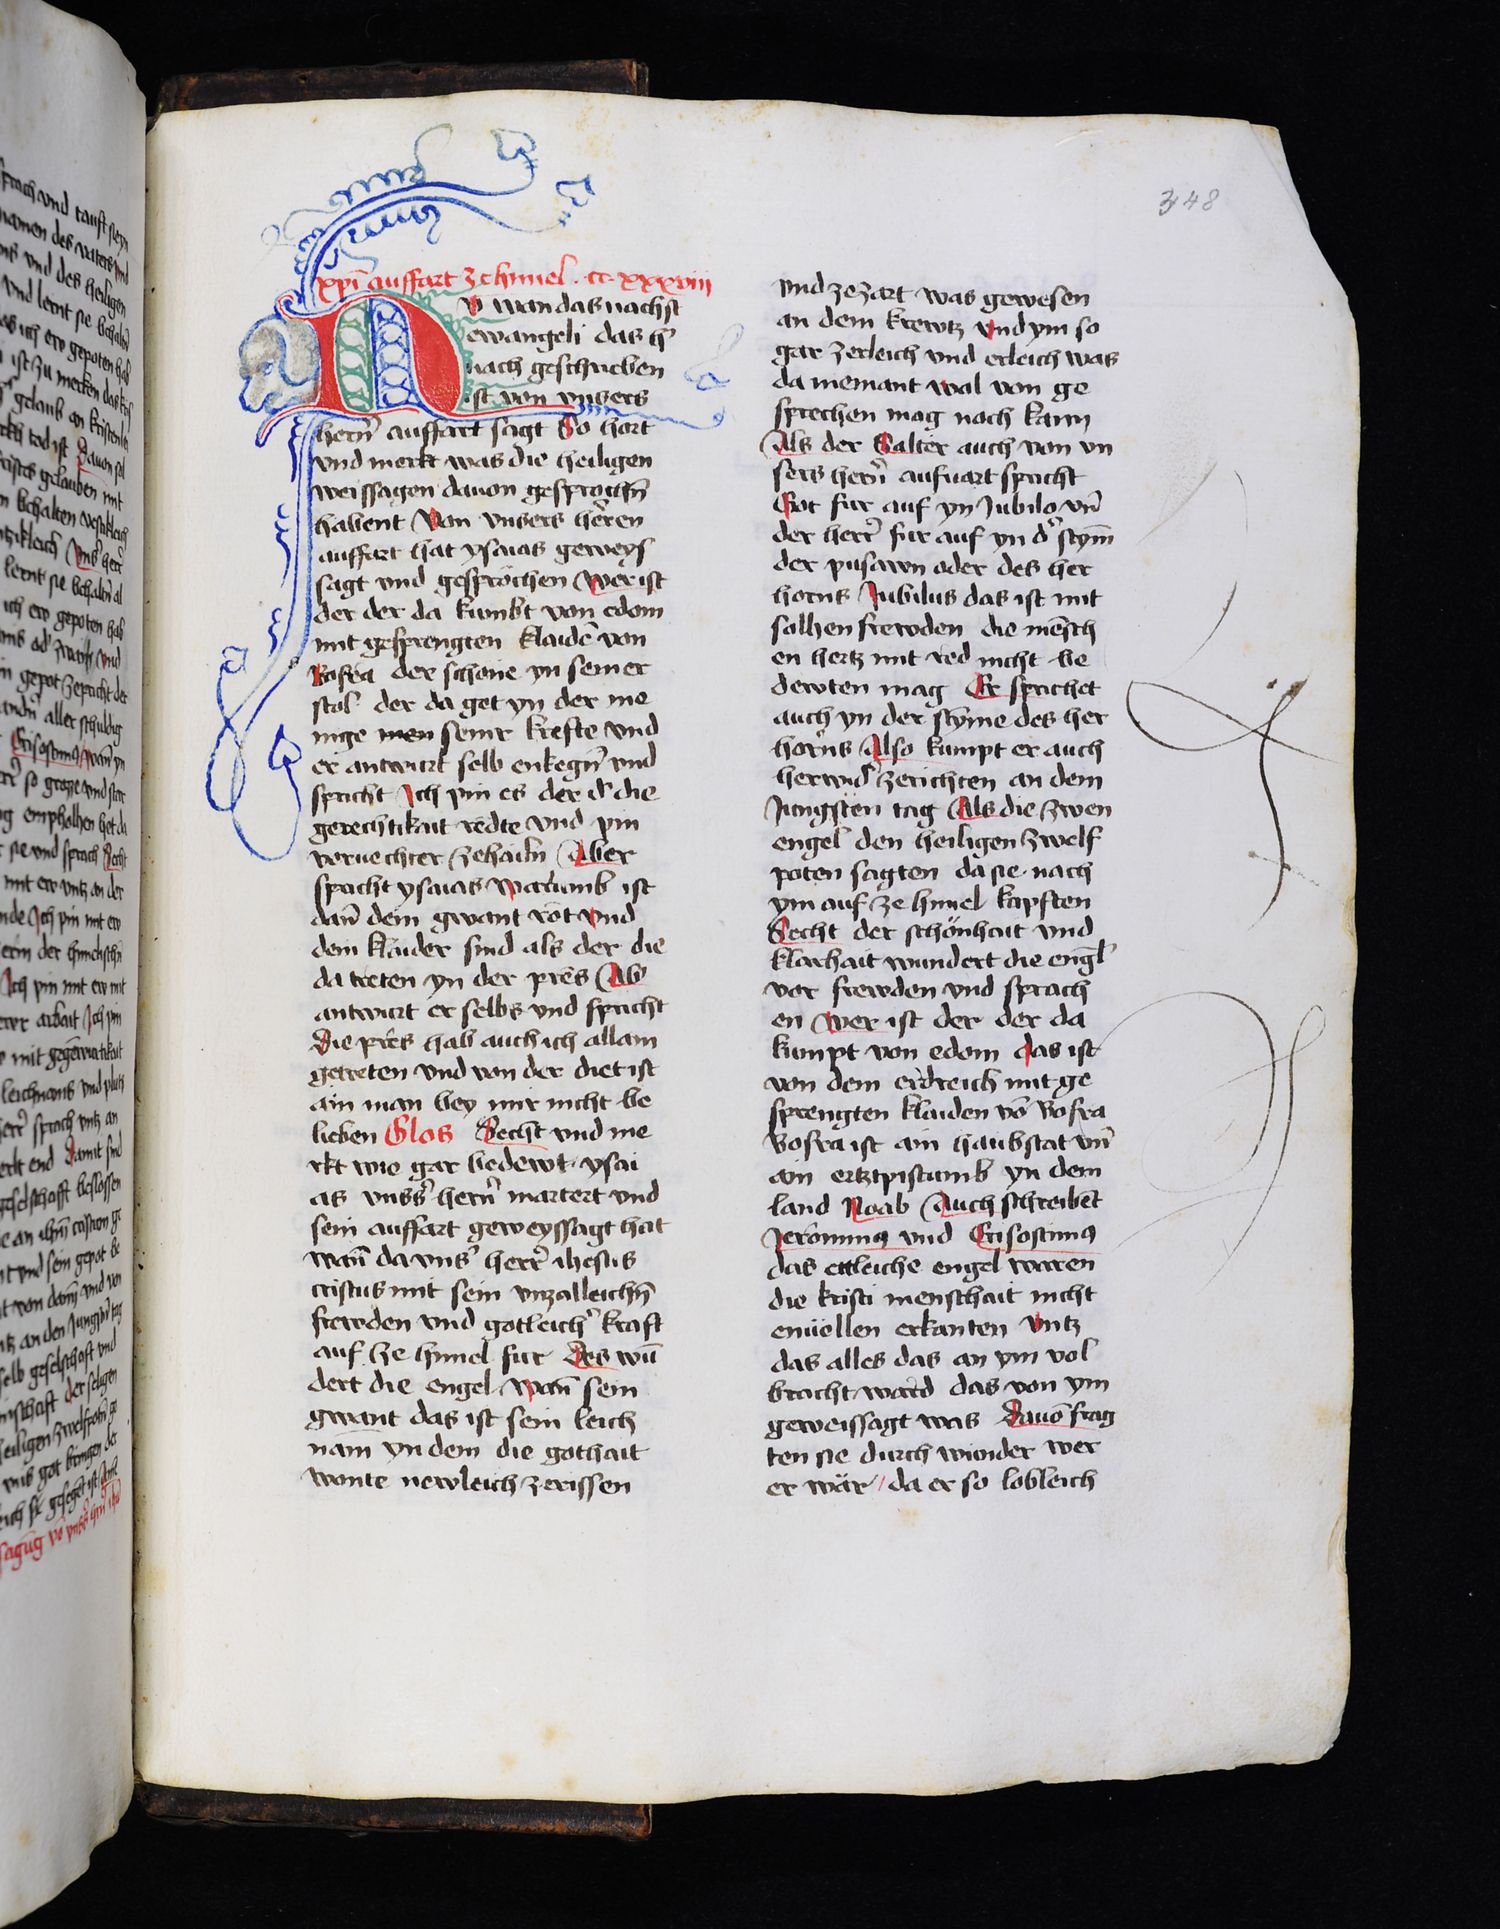 348
xpi auffart ze himel . cc xxxviii
Nu wan das nachst
ewangeli das h'
nach geschriben
ist von vnsers
hern̄ auffart sagt So hort
vnd merkt was die heiligen
weissagen dauon gesprochn̄
habent Von vnsers herren
auffart hat ysaias geweys
sagt vnd gesprochen Wer ist
der der da kumbt von edom
mit gesprengten klaidē von
Bosra der schone yn seiner
stol der da get yn der me
nige men seinr krefte vnd
er antwurt selb enkegn̄ vnd
spricht Ich pin es der d' die
gerechtikait redte vnd pin
voruechter ze hailn̄ Aber
spricht ysaias Warumb ist
dan̄ dein gwant rot vnd
dein klaider sind als der die
da treten yn der pres Ab'
antwurt er selbs vnd spricht
Die pres hab auch ich allain
getreten vnd von der diet ist
ain man bey mir nicht be
lieben Glos Secht vnd me
rkt wie gar bedewt ysai
as vnss' hern̄ martert vnd
sein auffart geweyssagt hat
wan̄ da vns' herr̄ ihesus
cristus mit sein vnzalleichn̄
frewden vnd gotleich' kraft
auf ze himel fur Des wū
dert die engel Wan̄ sein
gwant das ist sein leich
nam yn dem die gothait
wonte newleich zerissen
vnd zezart was gewesen
an dem krewtz vnd ym so
gar zerleich vnd erleich was
da niemant wal von ge
sprechen mag noch kann
Als der Salter auch von vn
sers hern̄ aufuart spricht
Got fur auf yn Jubilo vn̄
der herr̄ fur auf yn d' stym̄
der pusawn oder des her
horns Jubilus das ist mit
solhen frewden die mēsch
en hertz mit red nicht be
dewten mag Er sprichet
auch yn der styme des her
horns Also kumpt er auch
herwid' ze richten an dem
Jungsten tag Als die zwen
engel den heiligen zwelf
poten sagten da sie nach
ym auf ze himel kapften
Secht der schönhait vnd
klarhait wundert die engl
vor frewden vnd sprach
en Wer ist der der da
kumpt von edom das ist
von dem erdreich mit ge
sprengten klaiden vō Bosra
Bosra ist ain haubstat vn̄
ain ertzpistumb yn dem
land Moab Auch schreibēt
Jeronimus vnd Crisostimus
das ettleiche engel waren
die kristi menschait nicht
enuollen erkanten Vntz
das alles das an ym vol
bracht ward das von ym
geweissagt was Dauō frag
ten sie durch wunder wer
er wär / da er so lobleich